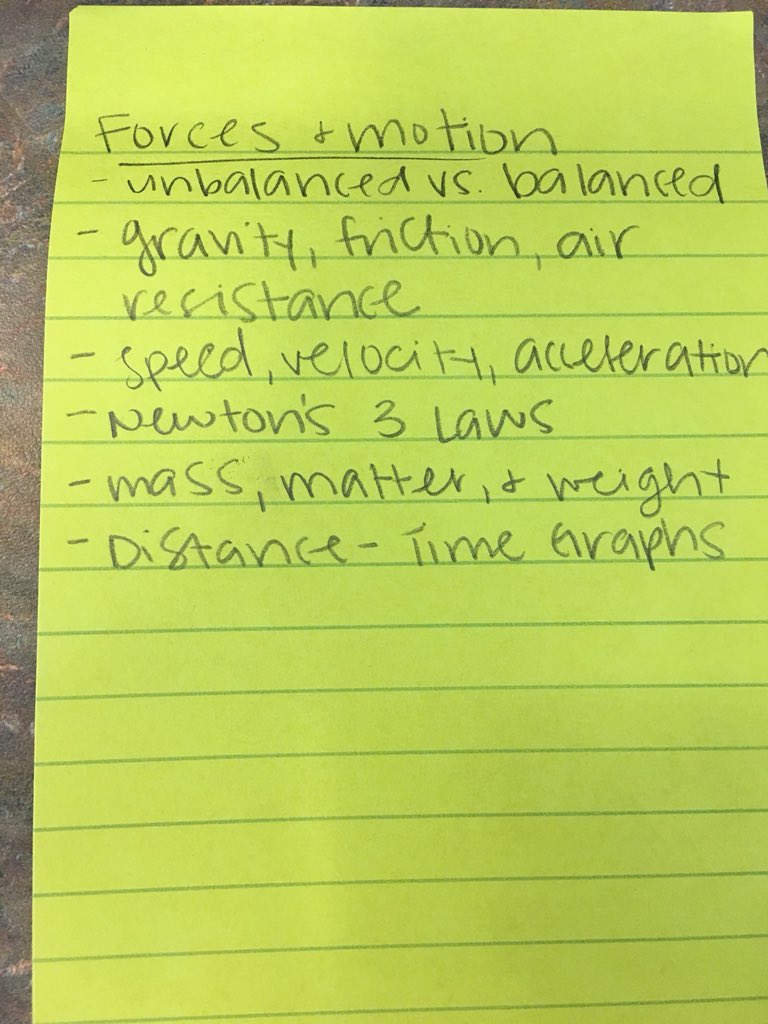 Forces + motion
- unbalanced vs. balanced
- gravity, friction, air
resistance
- speed, velocity, acceleration
- Newton's 3 Laws
- mass, matter, + weight
- Distance - Time Graphs